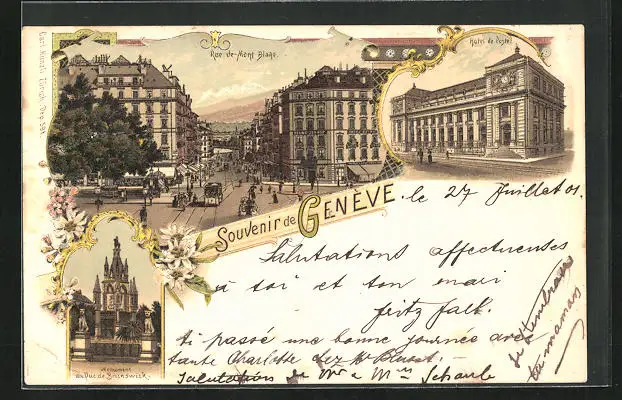 Carl Künzli, Zürich, Dep. 591
Rue de Mont Blanc.
Hotel de Poste.
Souvenir de GENÈVE.
le 27 Juillet 01.
Salutations affectueuses
à toi et ton mari
fritz falk.
ai passé une bonne journée avec
tante Charlotte chez
Salutation de Mr & Mme Schaule
Monument
du Duc de Brunswick.
ta maman